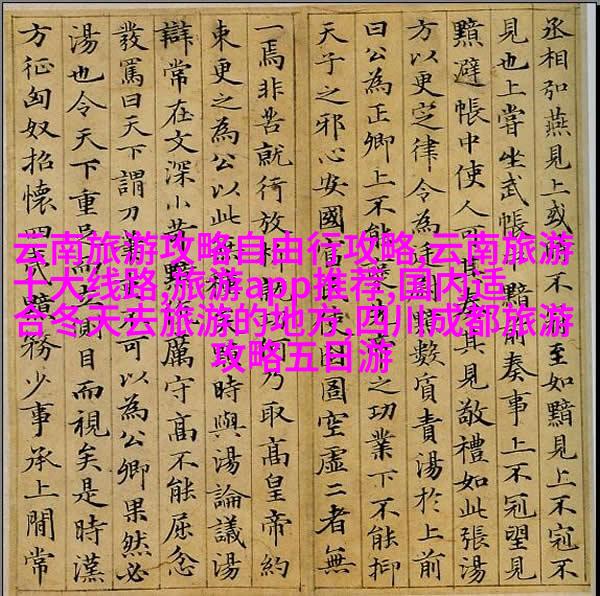 云南旅游攻略自由行攻略,云南旅游
十大线路,旅游app推荐,国内适
合冬天去旅游的地方,四川成都旅游
攻略五日游
丞相弘燕見上或不冠至如黯見上不冠不
見也上嘗坐武帳中黯前奏事上不冠望見
黯避帳中使人可其奏其見敬禮如此張湯
方以更定律令為廷尉黯數質責湯於上前
曰公為正卿上不能之功業下不能抑
天子之邪心安國富圄空虛二者無
一焉非苦就行放何乃取高皇帝約
束更之為公以此時與湯論議湯
辯常在文深小苛黯厲守高不能屈忿
發罵曰天下謂刀不可以為公卿果然必
湯也令天下重足而側目而視矣是時漢
方征匈奴招懷四夷黯務少事承上間常